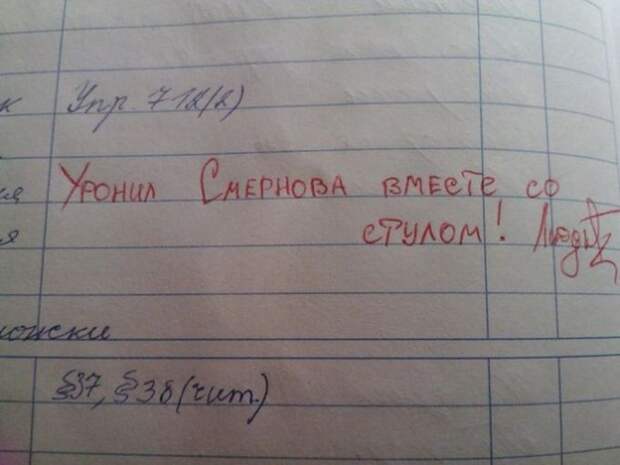 к Упр. 712(2)
ия Уронил Смернова вместе со
я стулом!
§37, §38 (чит.)